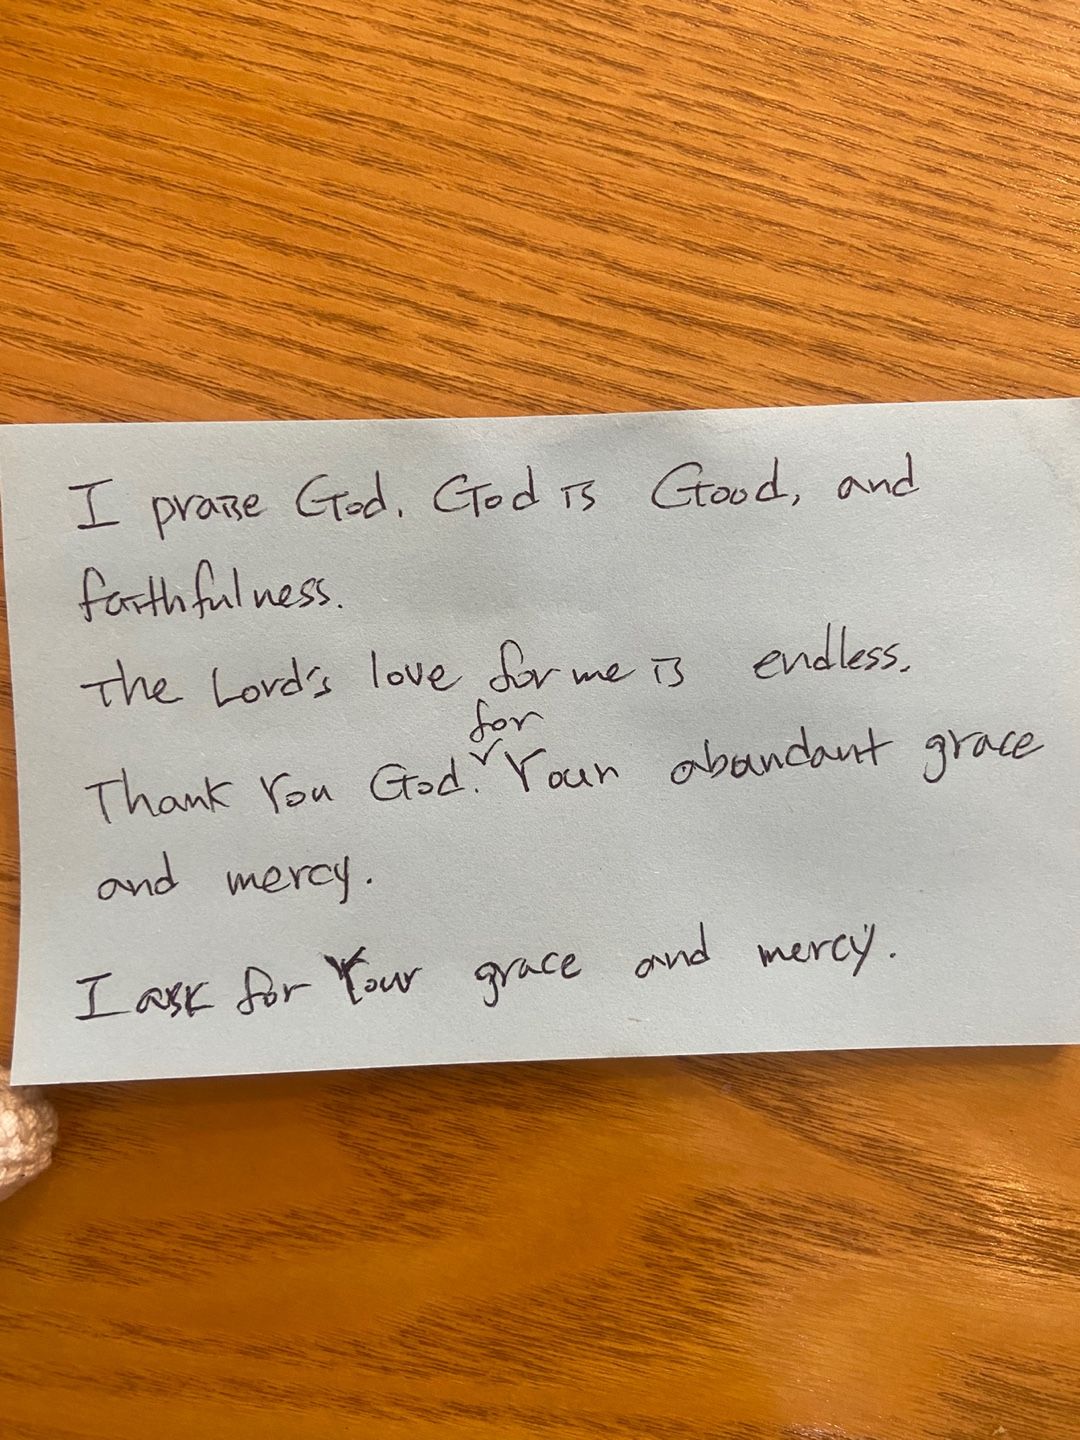 I praise God. God is Good, and
faithfulness.
The Lord's love for me is endless.
for
Thank You God. Your abundant grace
and mercy.
I ask for Your grace and mercy.